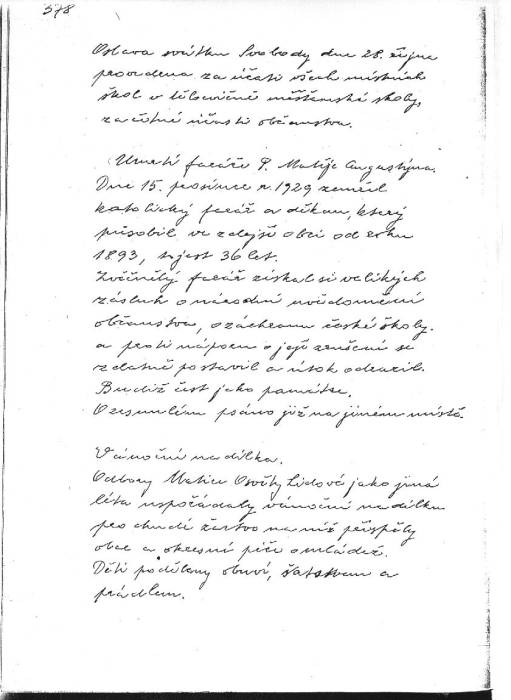 578
Oslava svátku Svobody dne 28. října
provedena za účasti všech místních
škol v tělocvičně měšťanské školy,
za četné účasti občanstva.
Úmrtí faráře P. Matěje Augustýna.
Dne 15. prosince r. 1929 zemřel
katolický farář a děkan, který
působil ve zdejší obci od roku
1893, tj jest 36 let.
Zvěčnělý farář získal si velikých
zásluh o národní uvědomění
občanstva, o záchranu české školy.
a proti náporu o její zrušení se
zdatně postavil a útok odrazil.
Budiž čest jeho památce.
O zesnulém psáno již na jiném místě.
Vánoční nadílka.
Odbory Matice Osvěty Lidové jako jiná
léta uspořádaly vánoční nadílku
pro chudé žactvo na niž přispěly
obec a okresní péče o mládež.
Děti poděleny obuví, šatstvem a
prádlem.